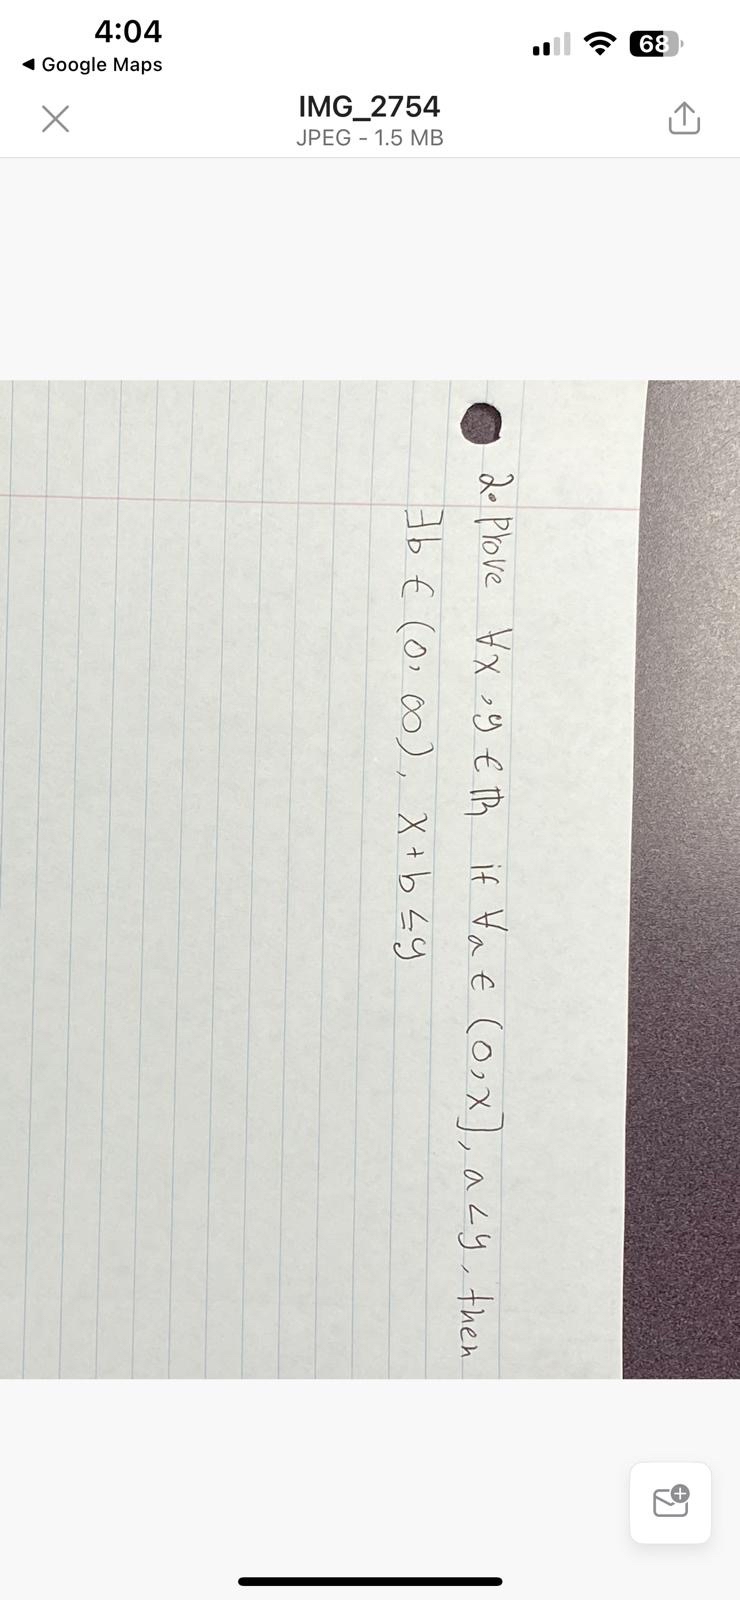 4:04
◀ Google Maps
68
IMG_2754
JPEG - 1.5 MB
2. Prove ∀x, y ∈ ℝ if ∀a ∈ (0, x], a < y, then
∃b ∈ (0, ∞), x + b ≤ y